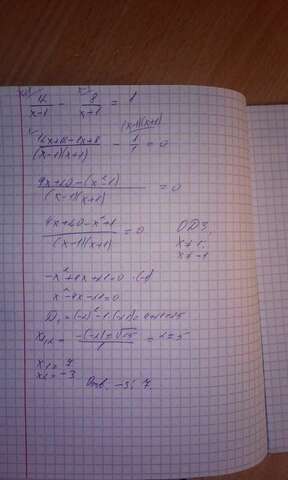 12/(x-1) - 8/(x+1) = 1
(12x+12-8x+8)/((x-1)(x+1)) - 1/1 = 0
(x-1)(x+1)
(4x+20-(x²-1))/((x-1)(x+1)) = 0
(4x+20-x²+1)/((x-1)(x+1)) = 0
ОДЗ,
x≠1;
x≠-1
-x²+4x+21=0 ·(-1)
x²-4x-21=0
D₁=(-2)²-1·(-21)=4+21=25
x₁,₂ = (-(-2)±√25)/1 = 2±5
x₁=7
x₂=-3
Отв. -3; 7.